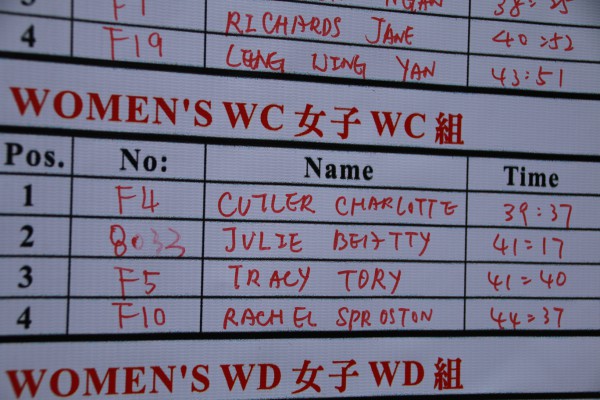 F1 38:35
4 F19 RICHARDS JANE 40:52
LENG WING YAN 43:51
WOMEN'S WC 女子 WC 組
Pos. No: Name Time
1 F4 CUTLER CHARLOTTE 39:37
2 8033 JULIE BEITTY 41:17
3 F5 TRACY TORY 41:40
4 F10 RACHEL SPROSTON 44:37
WOMEN'S WD 女子 WD 組